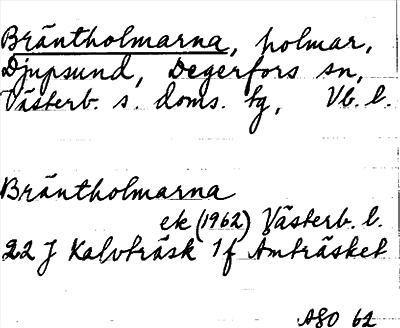 Bräntholmarna, holmar,
Djupsund, Degerfors sn,
Västerb. s. doms. tg, Vb. l.
Bräntholmarna
ek (1962) Västerb. l.
22 J Kalvträsk 1f Amträsket
ASO 62